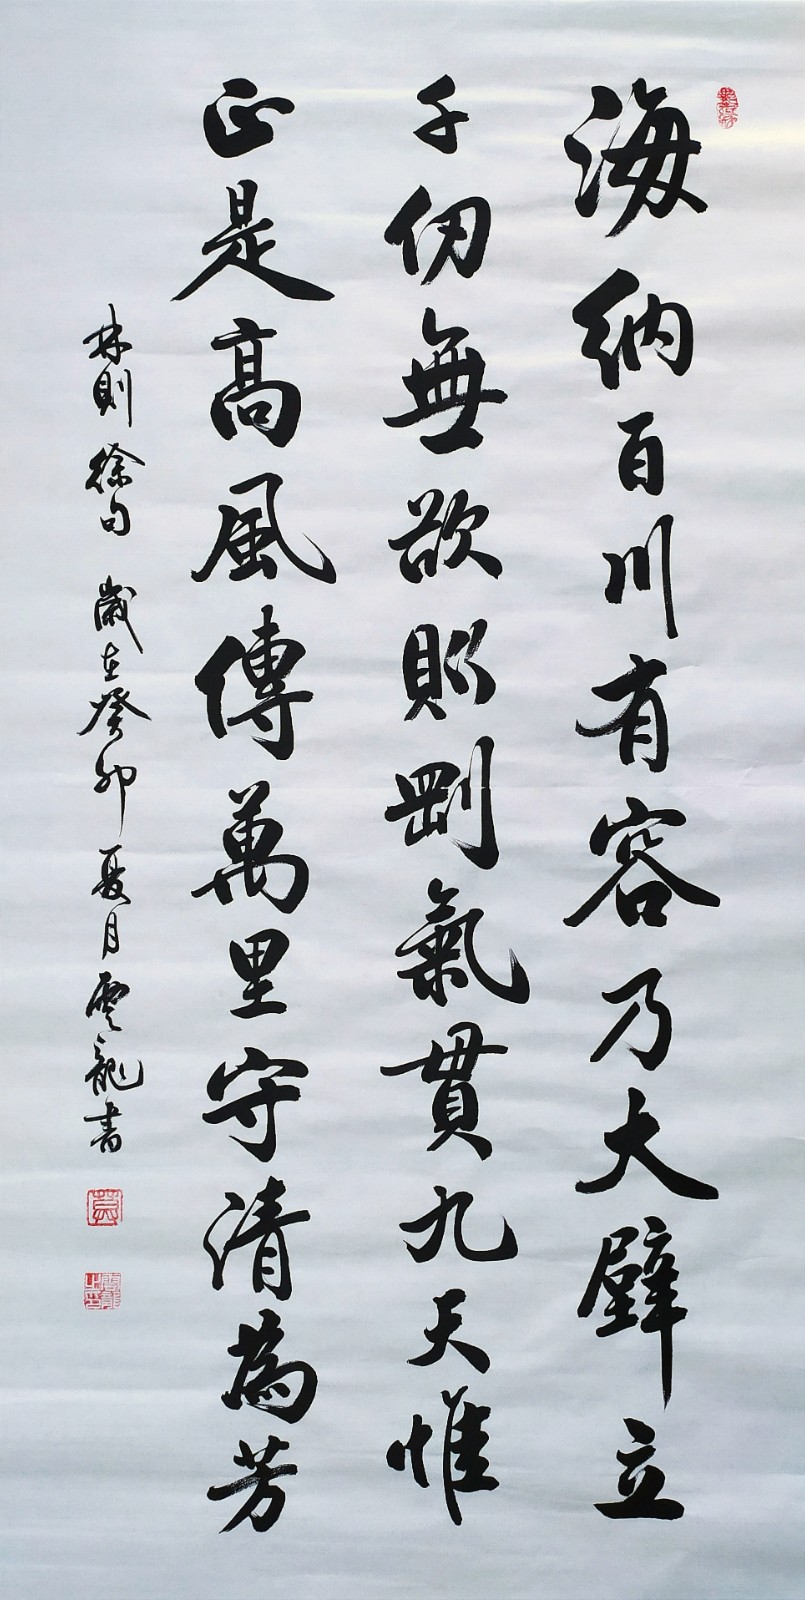 海納百川有容乃大壁立
千仞無欲則剛氣貫九天惟
正是高風傳萬里守清為芳
林則徐句 歲在癸卯夏月雲龍書